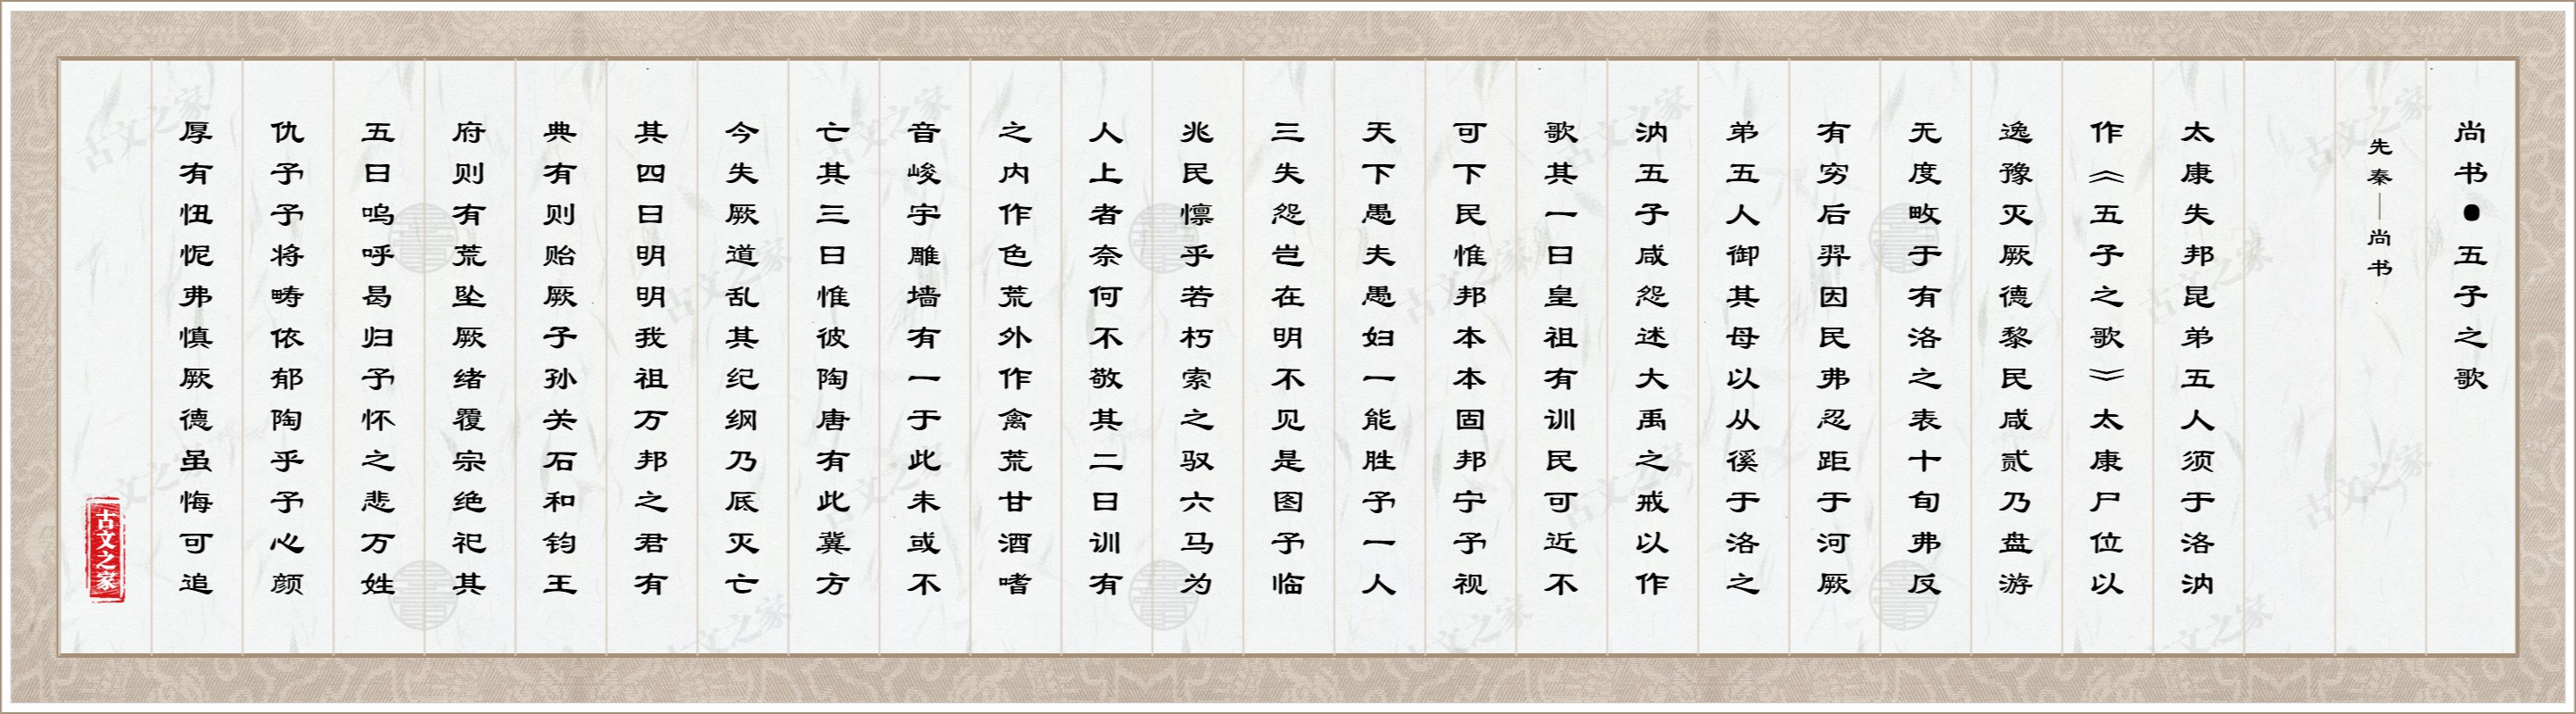 尚书●五子之歌
先秦—尚书
太康失邦昆弟五人须于洛汭
作《五子之歌》太康尸位以
逸豫灭厥德黎民咸贰乃盘游
无度畋于有洛之表十旬弗反
有穷后羿因民弗忍距于河厥
弟五人御其母以从徯于洛之
汭五子咸怨述大禹之戒以作
歌其一曰皇祖有训民可近不
可下民惟邦本本固邦宁予视
天下愚夫愚妇一能胜予一人
三失怨岂在明不见是图予临
兆民懔乎若朽索之驭六马为
人上者奈何不敬其二曰训有
之内作色荒外作禽荒甘酒嗜
音峻宇雕墙有一于此未或不
亡其三曰惟彼陶唐有此冀方
今失厥道乱其纪纲乃厎灭亡
其四曰明明我祖万邦之君有
典有则贻厥子孙关石和钧王
府则有荒坠厥绪覆宗绝祀其
五曰呜呼曷归予怀之悲万姓
仇予予将畴依郁陶乎予心颜
厚有忸怩弗慎厥德虽悔可追
古文之家